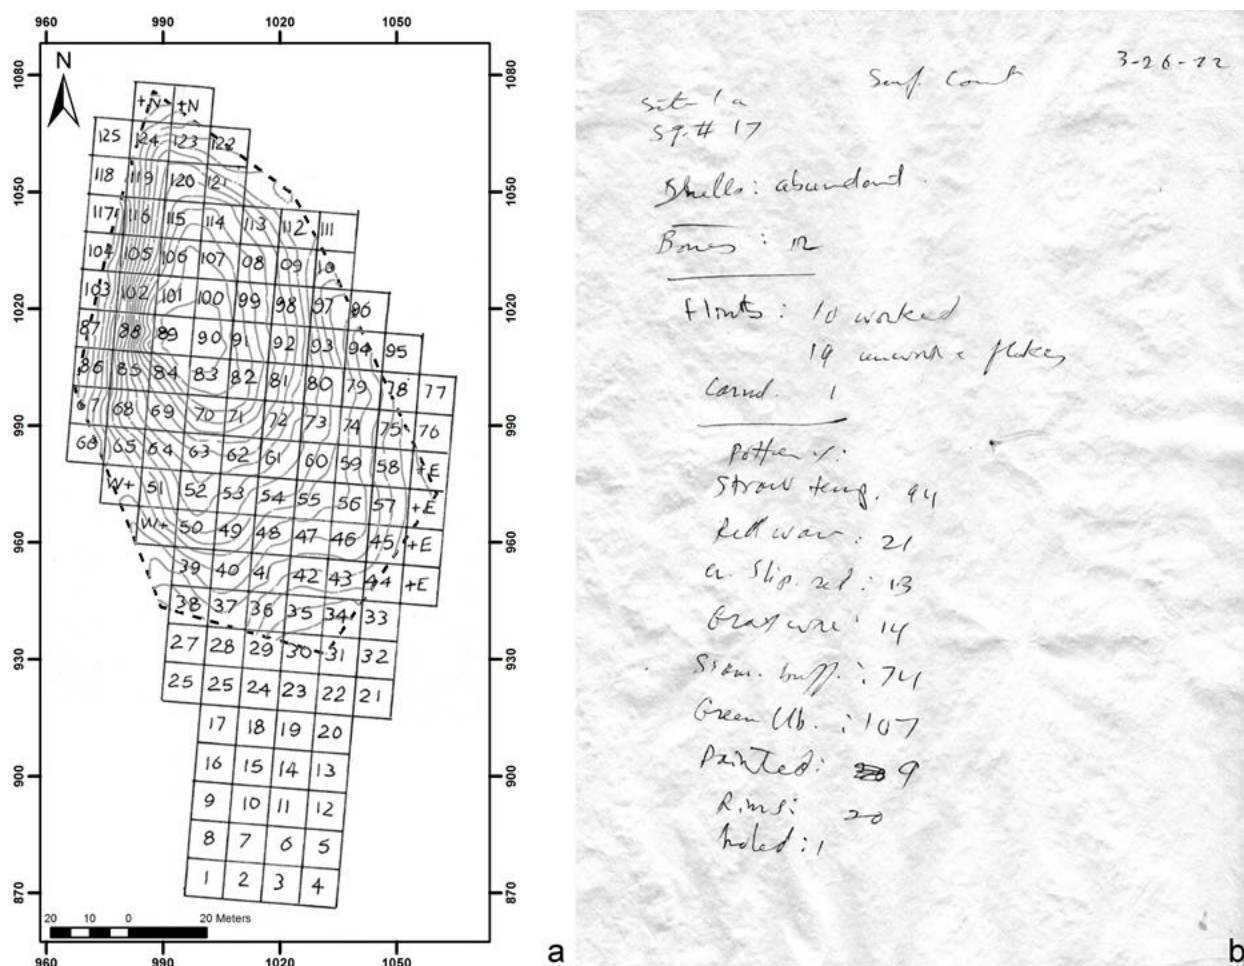 960 990 1020 1050
1080
1050
1020
990
960
930
900
870
N
+N +N
125 124 123 122
118 119 120 121
117 116 115 114 113 112 111
104 105 106 107 108 109 10
103 102 101 100 99 98 97 96
87 88 89 90 91 92 93 94 95
86 85 84 83 82 81 80 79 78 77
67 68 69 70 71 72 73 74 75 76
66 65 64 63 62 61 60 59 58 +E
W+ 51 52 53 54 55 56 57 +E
W+ 50 49 48 47 46 45 +E
39 40 41 42 43 44 +E
38 37 36 35 34 33
27 28 29 30 31 32
25 25 24 23 22 21
17 18 19 20
16 15 14 13
9 10 11 12
8 7 6 5
1 2 3 4
20 10 0 20 Meters
960 990 1020 1050
1080
1050
1020
990
960
930
900
870
a
3-26-72
Surf. Count
Site 1a
Sq. # 17
Shells: abundant
Bones: 12
Flints: 10 worked
19 flakes
1
Pottery:
Straw temp. 94
Red ware: 21
Slip. red: 13
Gray ware: 14
buff.: 74
Green : 107
Painted: 9
Rims: 20
holed: 1
b